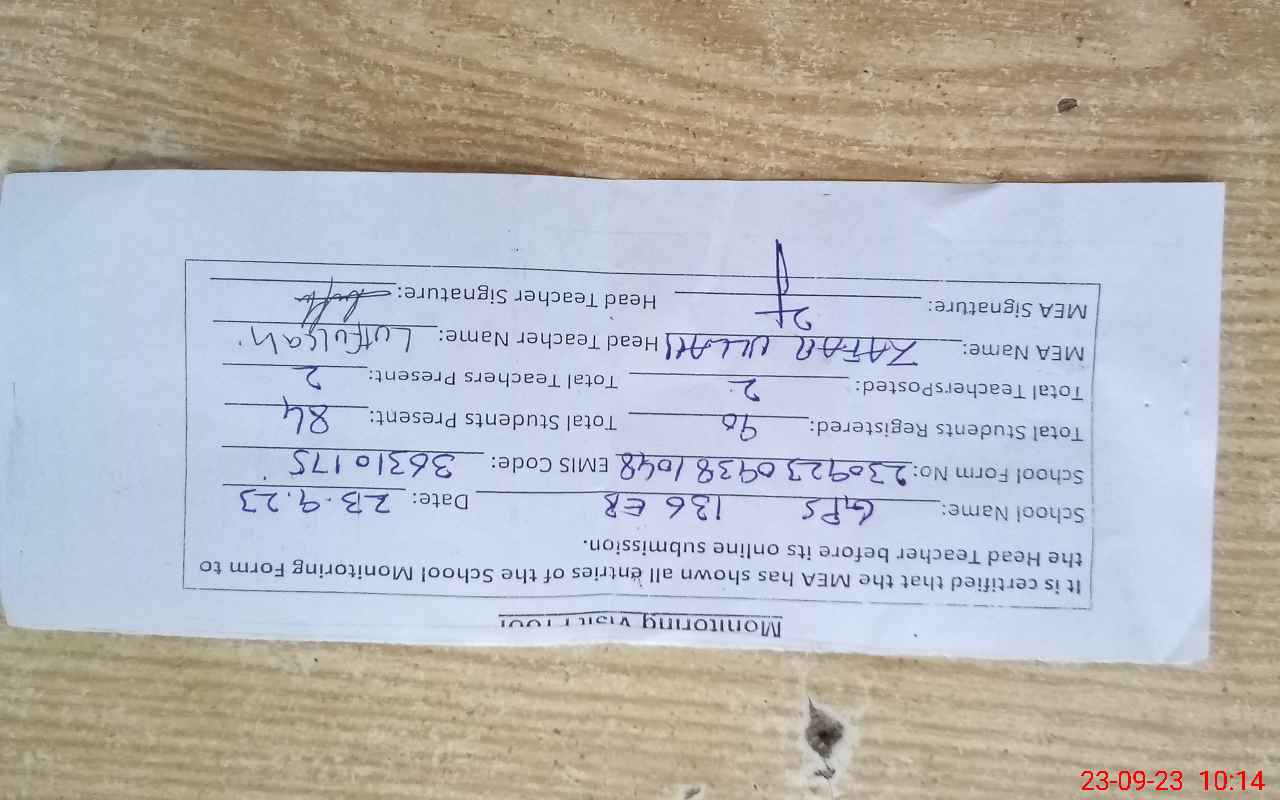 Monitoring Visit Proof
It is certified that the MEA has shown all entries of the School Monitoring Form to
the Head Teacher before its online submission.
School Name: GPS 136 EB Date: 23.9.23
School Form No: 23092309381048 EMIS Code: 36310175
Total Students Registered: 90 Total Students Present: 84
Total TeachersPosted: 2 Total Teachers Present: 2
MEA Name: ZAFAR ULLAH Head Teacher Name: Lutfullah
MEA Signature: Head Teacher Signature:
23-09-23 10:14